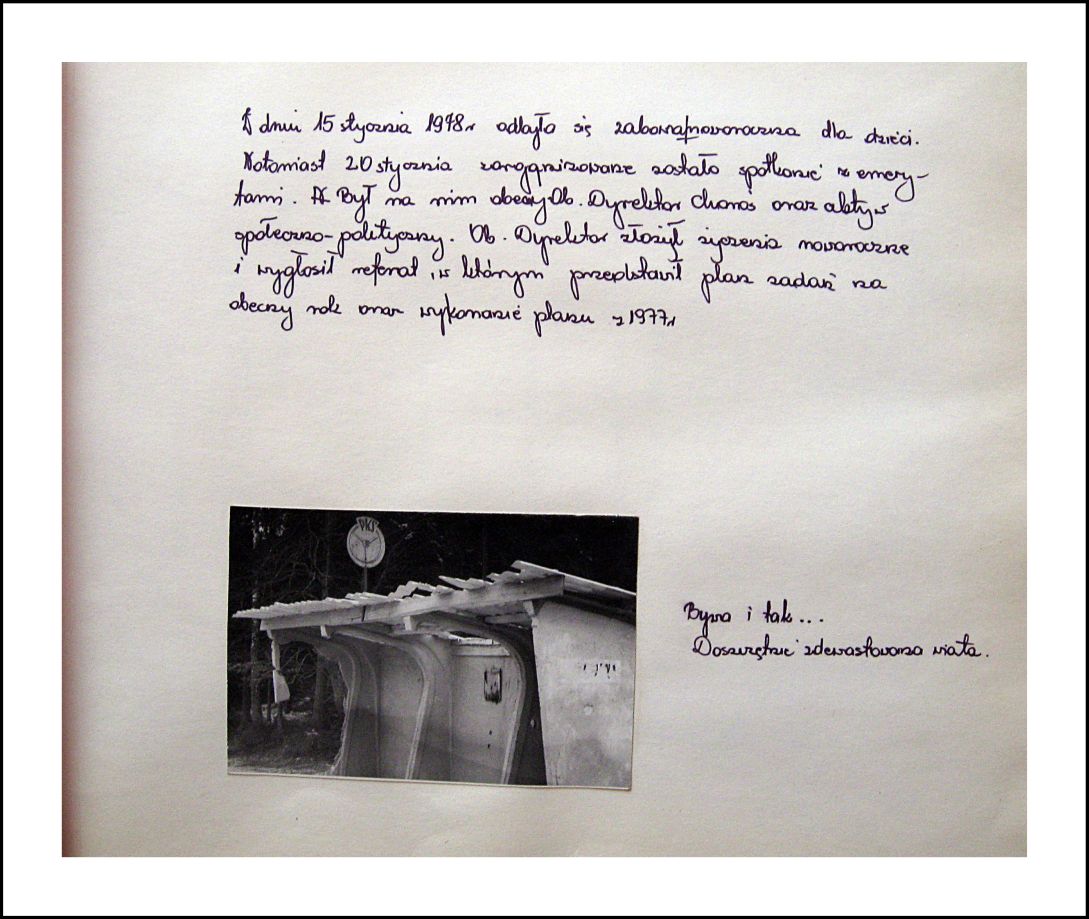 W dniu 15 stycznia 1978r odbyło się zabawa noworoczna dla dzieci.
Natomiast 20 stycznia zorganizowane zostało spotkanie z emery-
tami. Był na nim obecny Ob. Dyrektor Chamoś oraz aktyw
społeczno-polityczny. Ob. Dyrektor złożył życzenia noworoczne
i wygłosił referat, w którym przedstawił plan zadań na
obecny rok oraz wykonanie planu z 1977r
PKS
Bywa i tak...
Doszczętnie zdewastowana wiata.